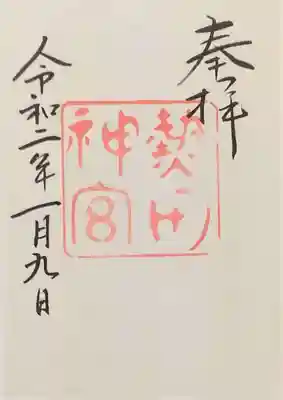 奉拝
熱田
神宮
令和二年一月九日